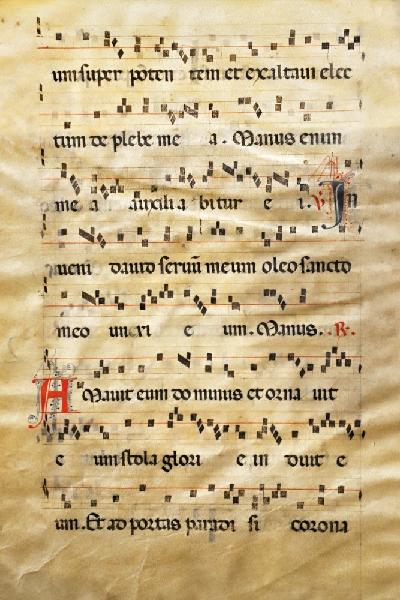 um super poten tem et exaltaui elec
tum de plebe me a. Manus enim
me a auxilia bitur e i. V In
ueni dauid seruū meum oleo sancto
meo unxi e um. Manus. R.
AMauit eum dominus et orna uit
e um stola glori e in duit e
um. Et ad portas paradi si corona